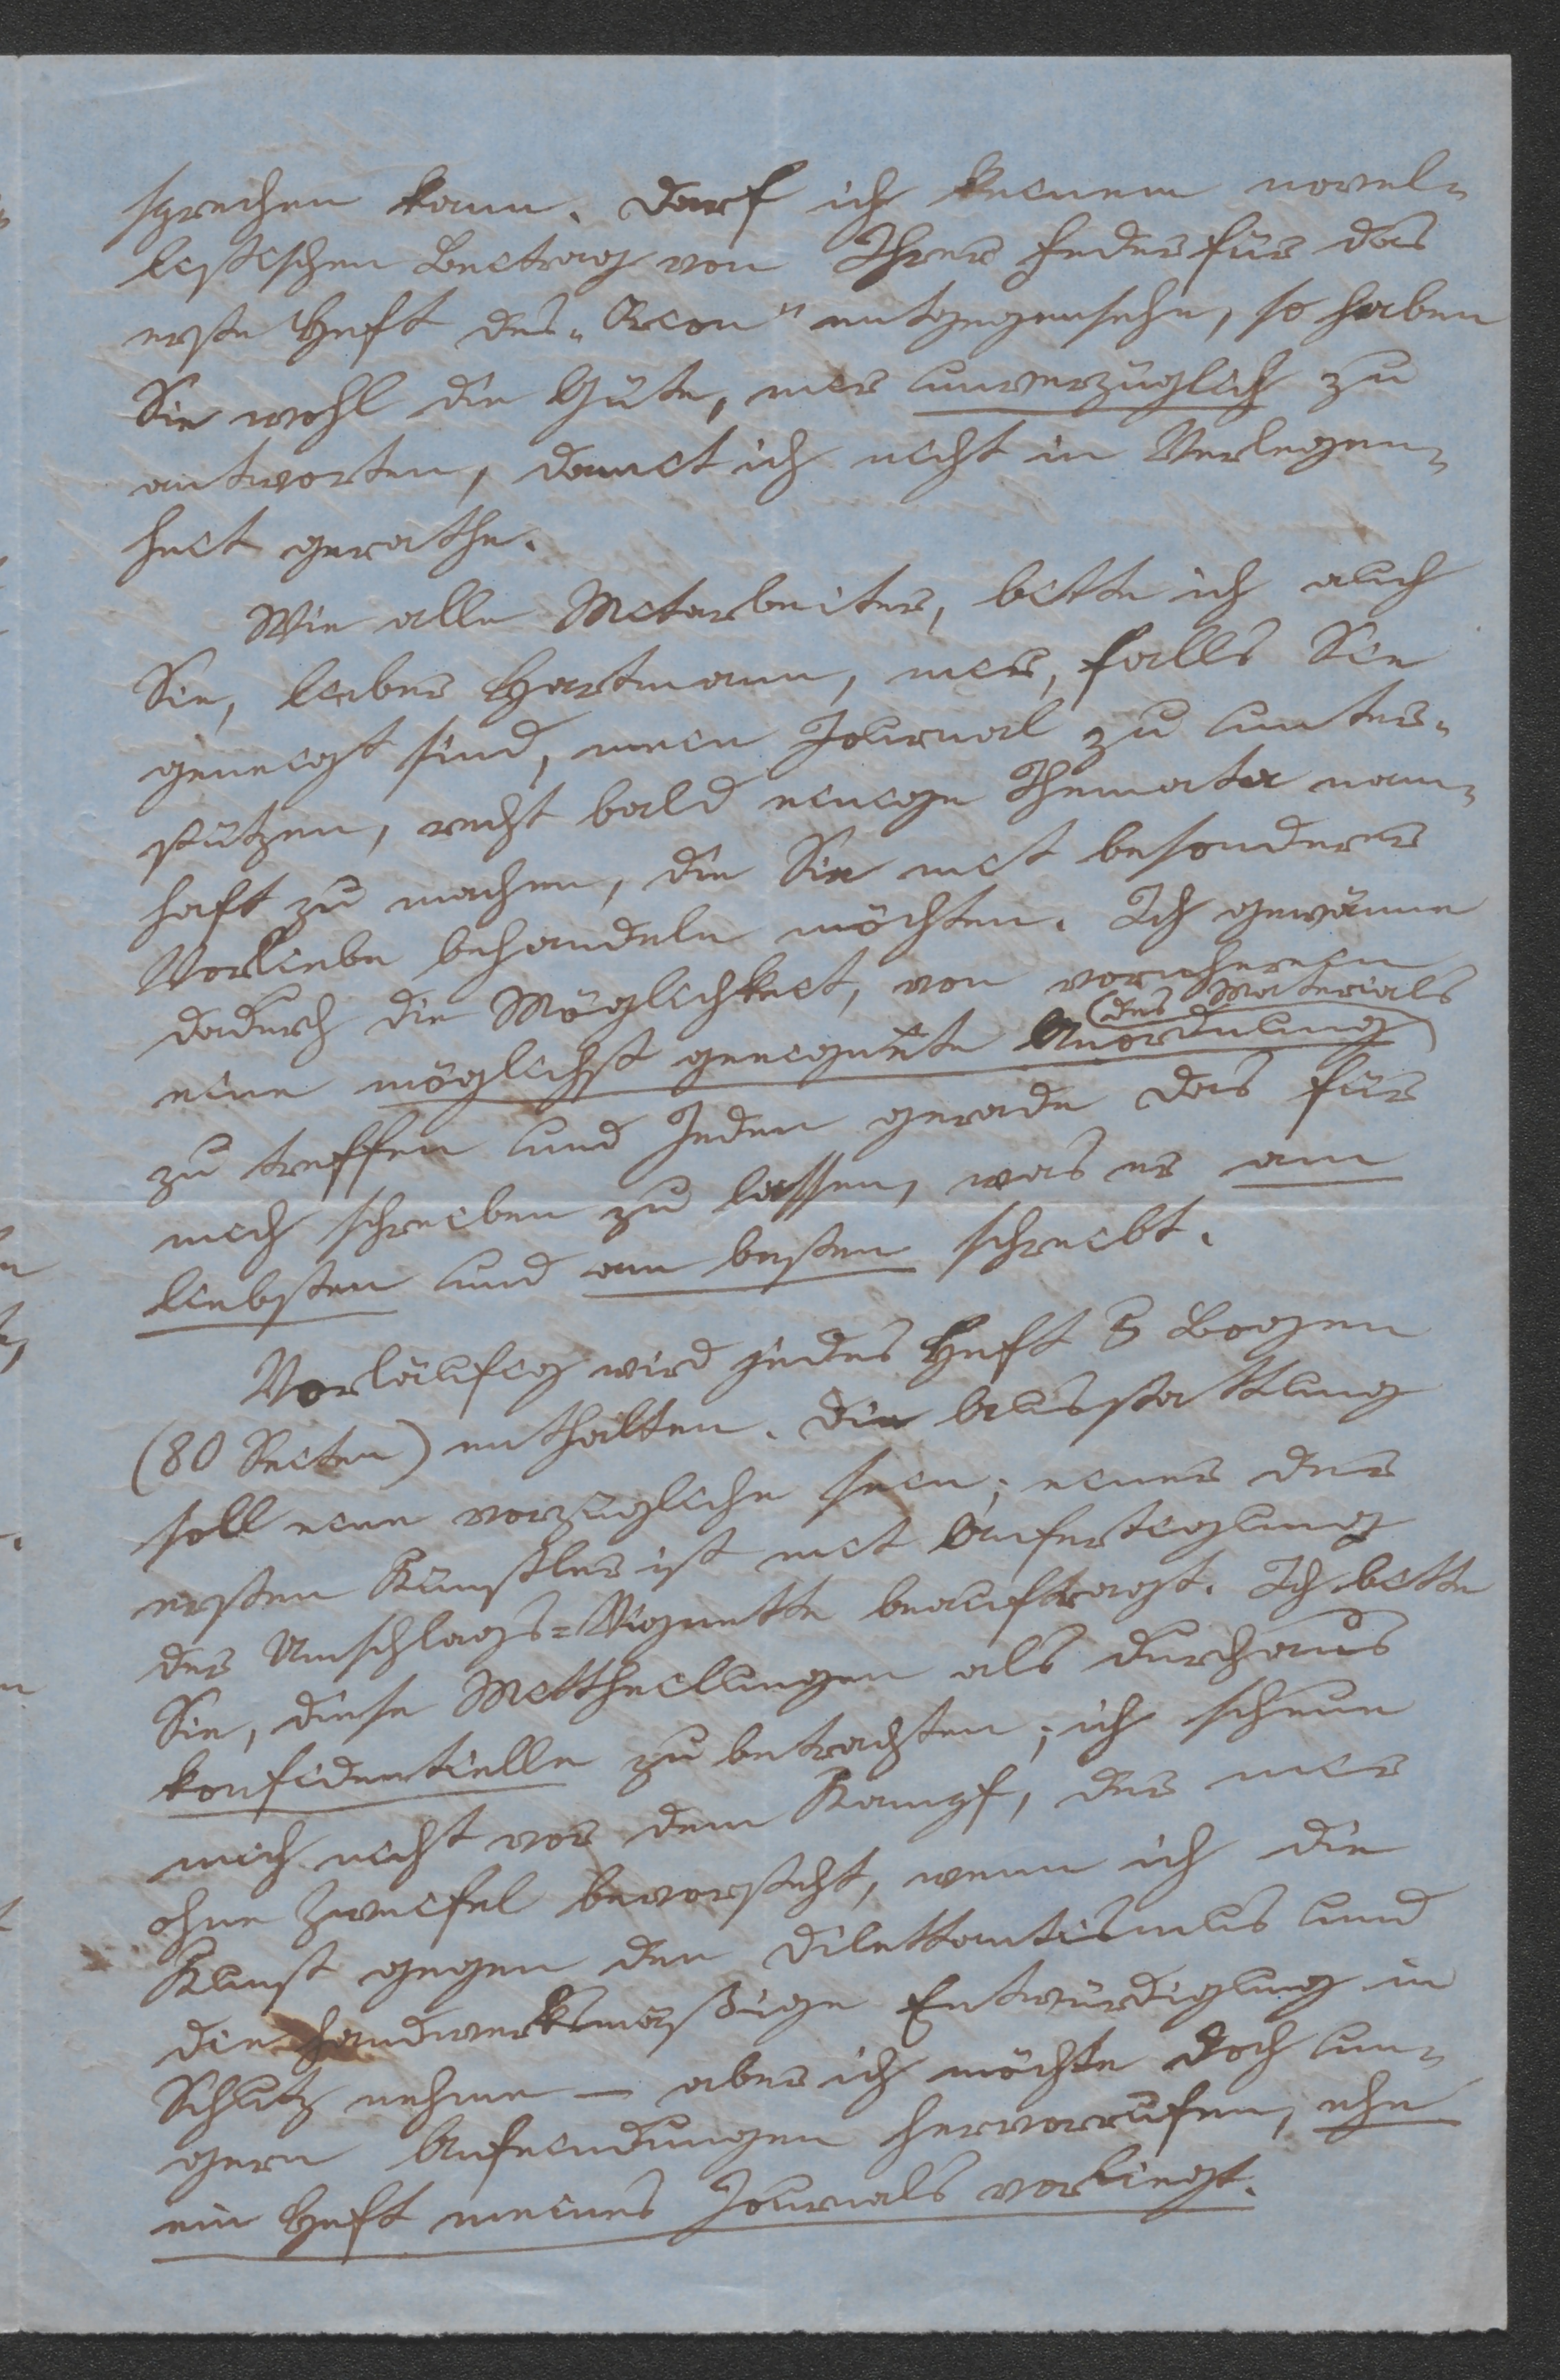 sprechen kann. Darf ich keinem novel-
listischen Beitrag von Ihrer Feder für das
erste Heft des „Orion" entgegensehn, so haben
Sie wohl die Güte, mir unverzüglich zu
antworten, damit ich nicht in Verlegen-
heit gerathe.
Wie alle Mitarbeiter, bitte ich auch
Sie, lieber Hartmann, mir, falls Sie
geneigt sind, mein Journal zu unter-
stützen, recht bald einige Themata nam-
haft zu machen, die Sie mit besonderer
Vorliebe behandeln möchten. Ich gewänne
dadurch die Möglichkeit, von vornherein
des Materials
eine möglichst geeignete Anordnung
zu treffen und Jeden gerade das für
mich schreiben zu lassen, was er am
liebsten und am besten schreibt.
Vorläufig wird jedes Heft 5 Bogen
(80 Seiten) enthalten. Die Ausstattung
soll eine vorzügliche sein; einer der
ersten Künstler ist mit Anfertigung
der Umschlags=Vignette beauftragt. Ich bitte
Sie, diese Mittheilungen als durchaus
konfidentielle zu betrachten; ich scheue
mich nicht vor dem Kampf, der mir
ohne Zweifel bevorsteht, wenn ich die
Kunst gegen den Dilettantismus und
die handwerksmäßige Entwürdigung in
Schutz nehme — aber ich möchte doch un-
gern Anfeindungen hervorrufen, ehe
ein Heft meines Journals vorliegt.